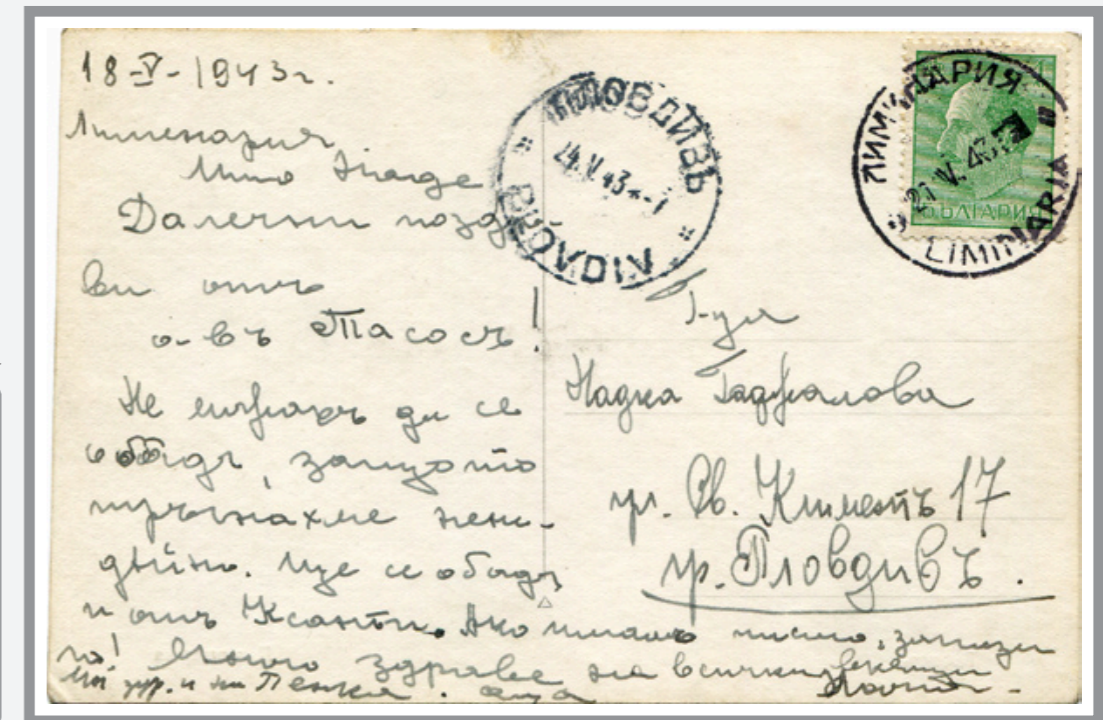 18-V-1943г.
Лименария
Мила Наде
Далечни позд
ви отъ
о-въ Тасосъ!
Не можахъ да се
обадя, защото
тръгнахме нена-
дейно. Ще се обадя
и отъ Ксанти. Ако имамъ писмо, запази
го! Много здраве на всички
и на Пенка.
ПЛОВДИВЪ
24.V.43
PLOVDIV
ЛИМИНАРИЯ
21.V.43
LIMINARIA
БЪЛГАРИЯ
Г-ца
Надка
ул. Св. Климентъ 17
гр. Пловдивъ.